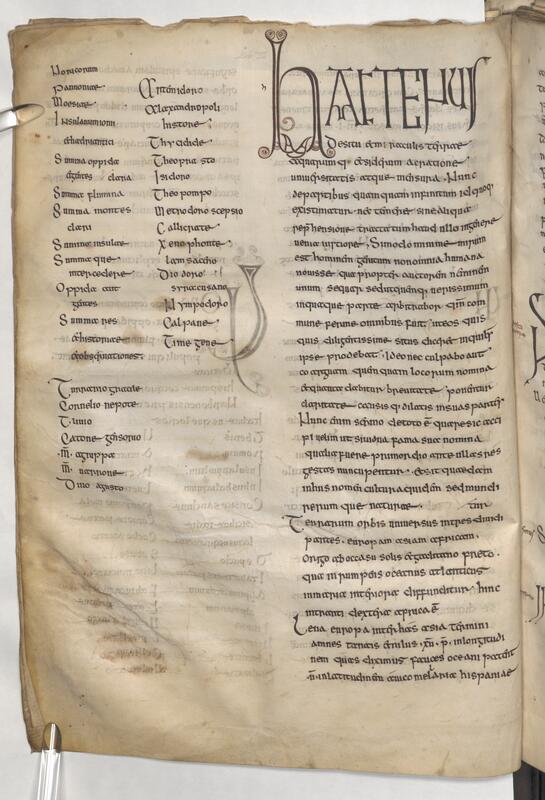 Noricorum
pannoniae
Moesiae
Insularum ioni
et hadriatici
Summa oppida
gentes clara
Summa flumina
Summa montes
clari
Summa insulae
Summa que
intercedere
Oppida aut
gentes
Summa res
et historiae
et observationes
Turranio gracile
Cornelio nepote
T livio
Catone gensorio
.m. agrippa
.m. varrone
Divo agusto
Artemidoro
Alexandropoli
histone
Thycidide
Theophra sto
Isidoro
Theo pompo
Metrodoro scepsio
Callicrate
Xenophonte
lamsacho
Diodoro
syraccusano
Nympodoro
Calpane
Timegene
HACTENUS
De situ et miraculis terrae
aquarum q; et siderum ac ratione
universitatis atque mensura. Nunc
de partibus quamquam infinitum id quoq;
existimatur nec temere sine aliqua
reprehensione tractatum haud ullo in genere
venia iustiore. Si modo minime mirum
est hominem genitum non omnia humana
novisse. qua propter auctorem neminem
unum sequar sed ut quemq; verissimum
inquaque parte arbitrabor qm̄ com
mune ferme omnibus fuit ut eos quis
quis diligentissime situs diceret in quib;
ipse prodebat. Ideo nec culpabo aut
coarguam quemquam locorum nomina
et quanta dabitur brevitate ponentur
claritate causis q; dilatis in suas partes
Nunc enim sermo de toto ē quare sic acci
pi velim ut si vidua fama sua nomina
qualia fuere primordio ante ullas res
gestas nuncupentur. et sit quaedam
in his nomenclatura quidem sed mundi
rerum que naturae.
Terrarum orbis universus in tres dividi
partes. europam asiam africam.
Origo ab occasu solis et gaditano freto.
qua inrumpens oceanus atlanticus
in maria interiora diffunditur. hinc
intranti dextera africa ē
Leva europa inter has asia termini
amnes tanais et nilus. xv. p. in longitudi
nem quas diximus fauces oceani patent
v. in latitudinem a vico mellariae hispaniae